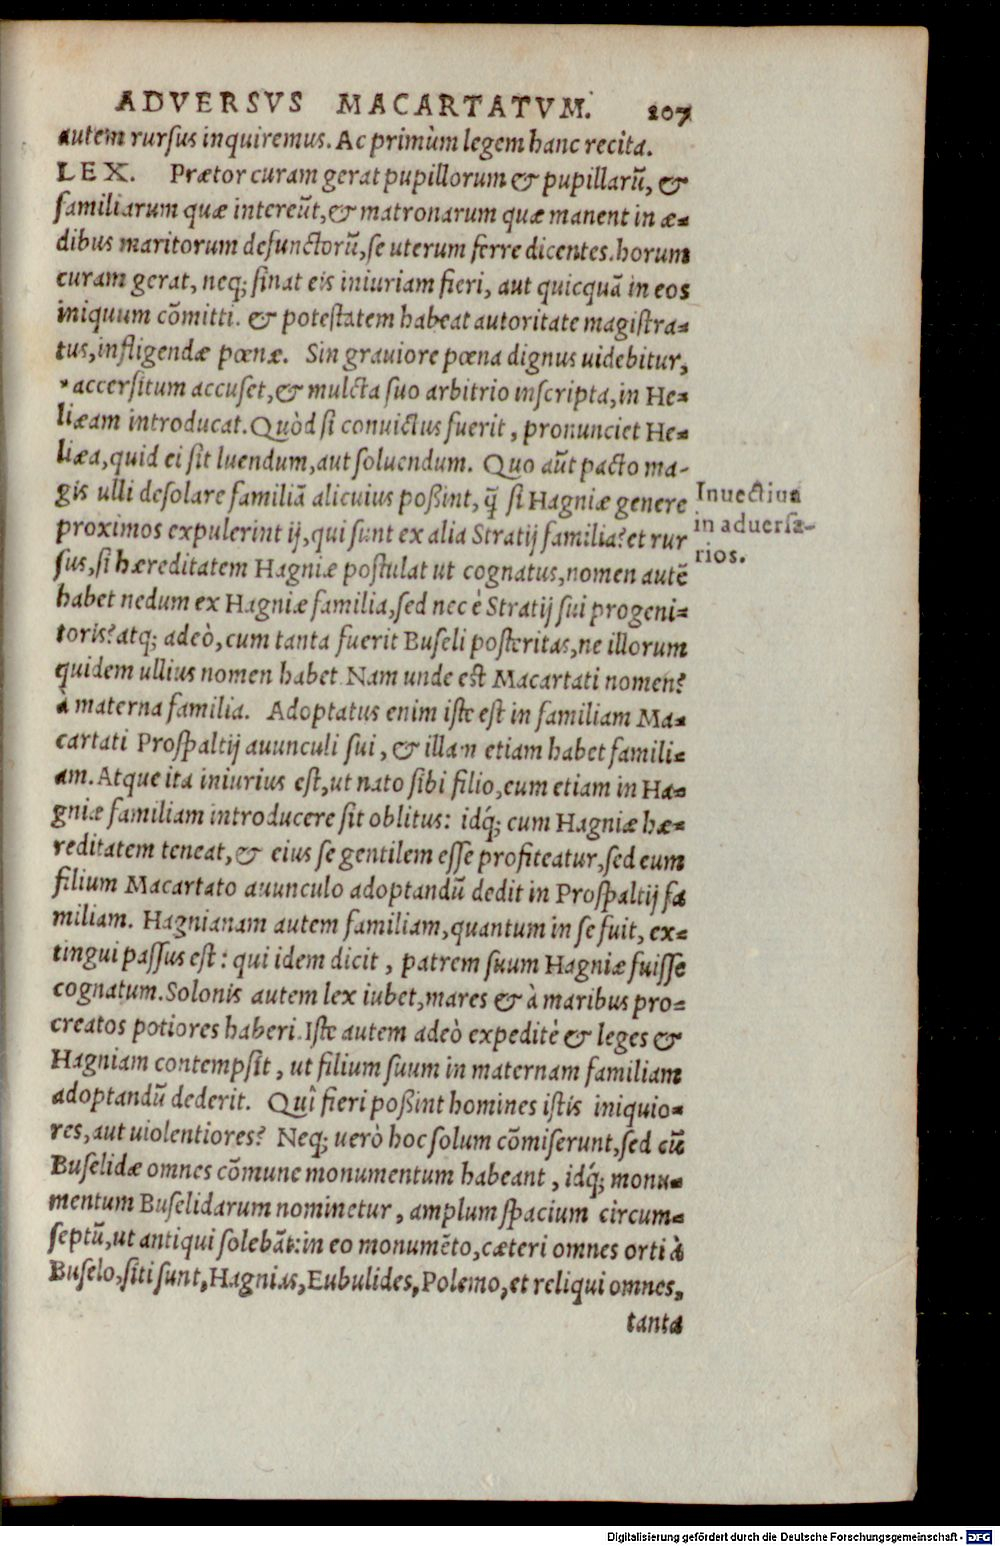 ADVERSVS MACARTATVM. 207
autem rursus inquiremus. Ac primùm legem hanc recita.
LEX. Prætor curam gerat pupillorum & pupillarũ, &
familiarum quæ intereũt, & matronarum quæ manent in æ-
dibus maritorum defunctorũ, se uterum ferre dicentes. horum
curam gerat, neq; sinat eis iniuriam fieri, aut quicquã in eos
iniquum cõmitti. & potestatem habeat autoritate magistra-
tus, infligendæ pœnæ. Sin grauiore pœna dignus uidebitur,
*accersitum accuset, & mulcta suo arbitrio inscripta, in He-
liæam introducat. Quòd si conuictus fuerit, pronunciet He-
liæa, quid ei sit luendum, aut soluendum. Quo aũt pacto ma-
gis ulli desolare familiã alicuius poßint, q̃ si Hagniæ genere
proximos expulerint ij, qui sunt ex alia Stratij familia? et rur
sus, si hæreditatem Hagniæ postulat ut cognatus, nomen autẽ
habet nedum ex Hagniæ familia, sed nec è Stratij sui progeni-
toris? atq; adeò, cum tanta fuerit Buseli posteritas, ne illorum
quidem ullius nomen habet. Nam unde est Macartati nomen?
à materna familia. Adoptatus enim iste est in familiam Ma-
cartati Prospaltij auunculi sui, & illam etiam habet famili-
am. Atque ita iniurius est, ut nato sibi filio, eum etiam in Ha-
gniæ familiam introducere sit oblitus: idq́; cum Hagniæ hæ-
reditatem teneat, & eius se gentilem esse profiteatur, sed eum
filium Macartato auunculo adoptandũ dedit in Prospaltij fa
miliam. Hagnianam autem familiam, quantum in se fuit, ex-
tingui passus est: qui idem dicit, patrem suum Hagniæ fuisse
cognatum. Solonis autem lex iubet, mares & à maribus pro-
creatos potiores haberi. Iste autem adeò expeditè & leges &
Hagniam contempsit, ut filium suum in maternam familiam
adoptandũ dederit. Quî fieri poßint homines istis iniquio-
res, aut uiolentiores? Neq; uerò hoc solum cõmiserunt, sed cũ
Buselidæ omnes cõmune monumentum habeant, idq́; monu-
mentum Buselidarum nominetur, amplum spacium circum-
septũ, ut antiqui solebãt: in eo monumẽto, cæteri omnes orti à
Buselo, siti sunt, Hagnias, Eubulides, Polemo, et reliqui omnes,
tanta
Inuectiua
in aduersa-
rios.
Digitalisierung gefördert durch die Deutsche Forschungsgemeinschaft - DFG